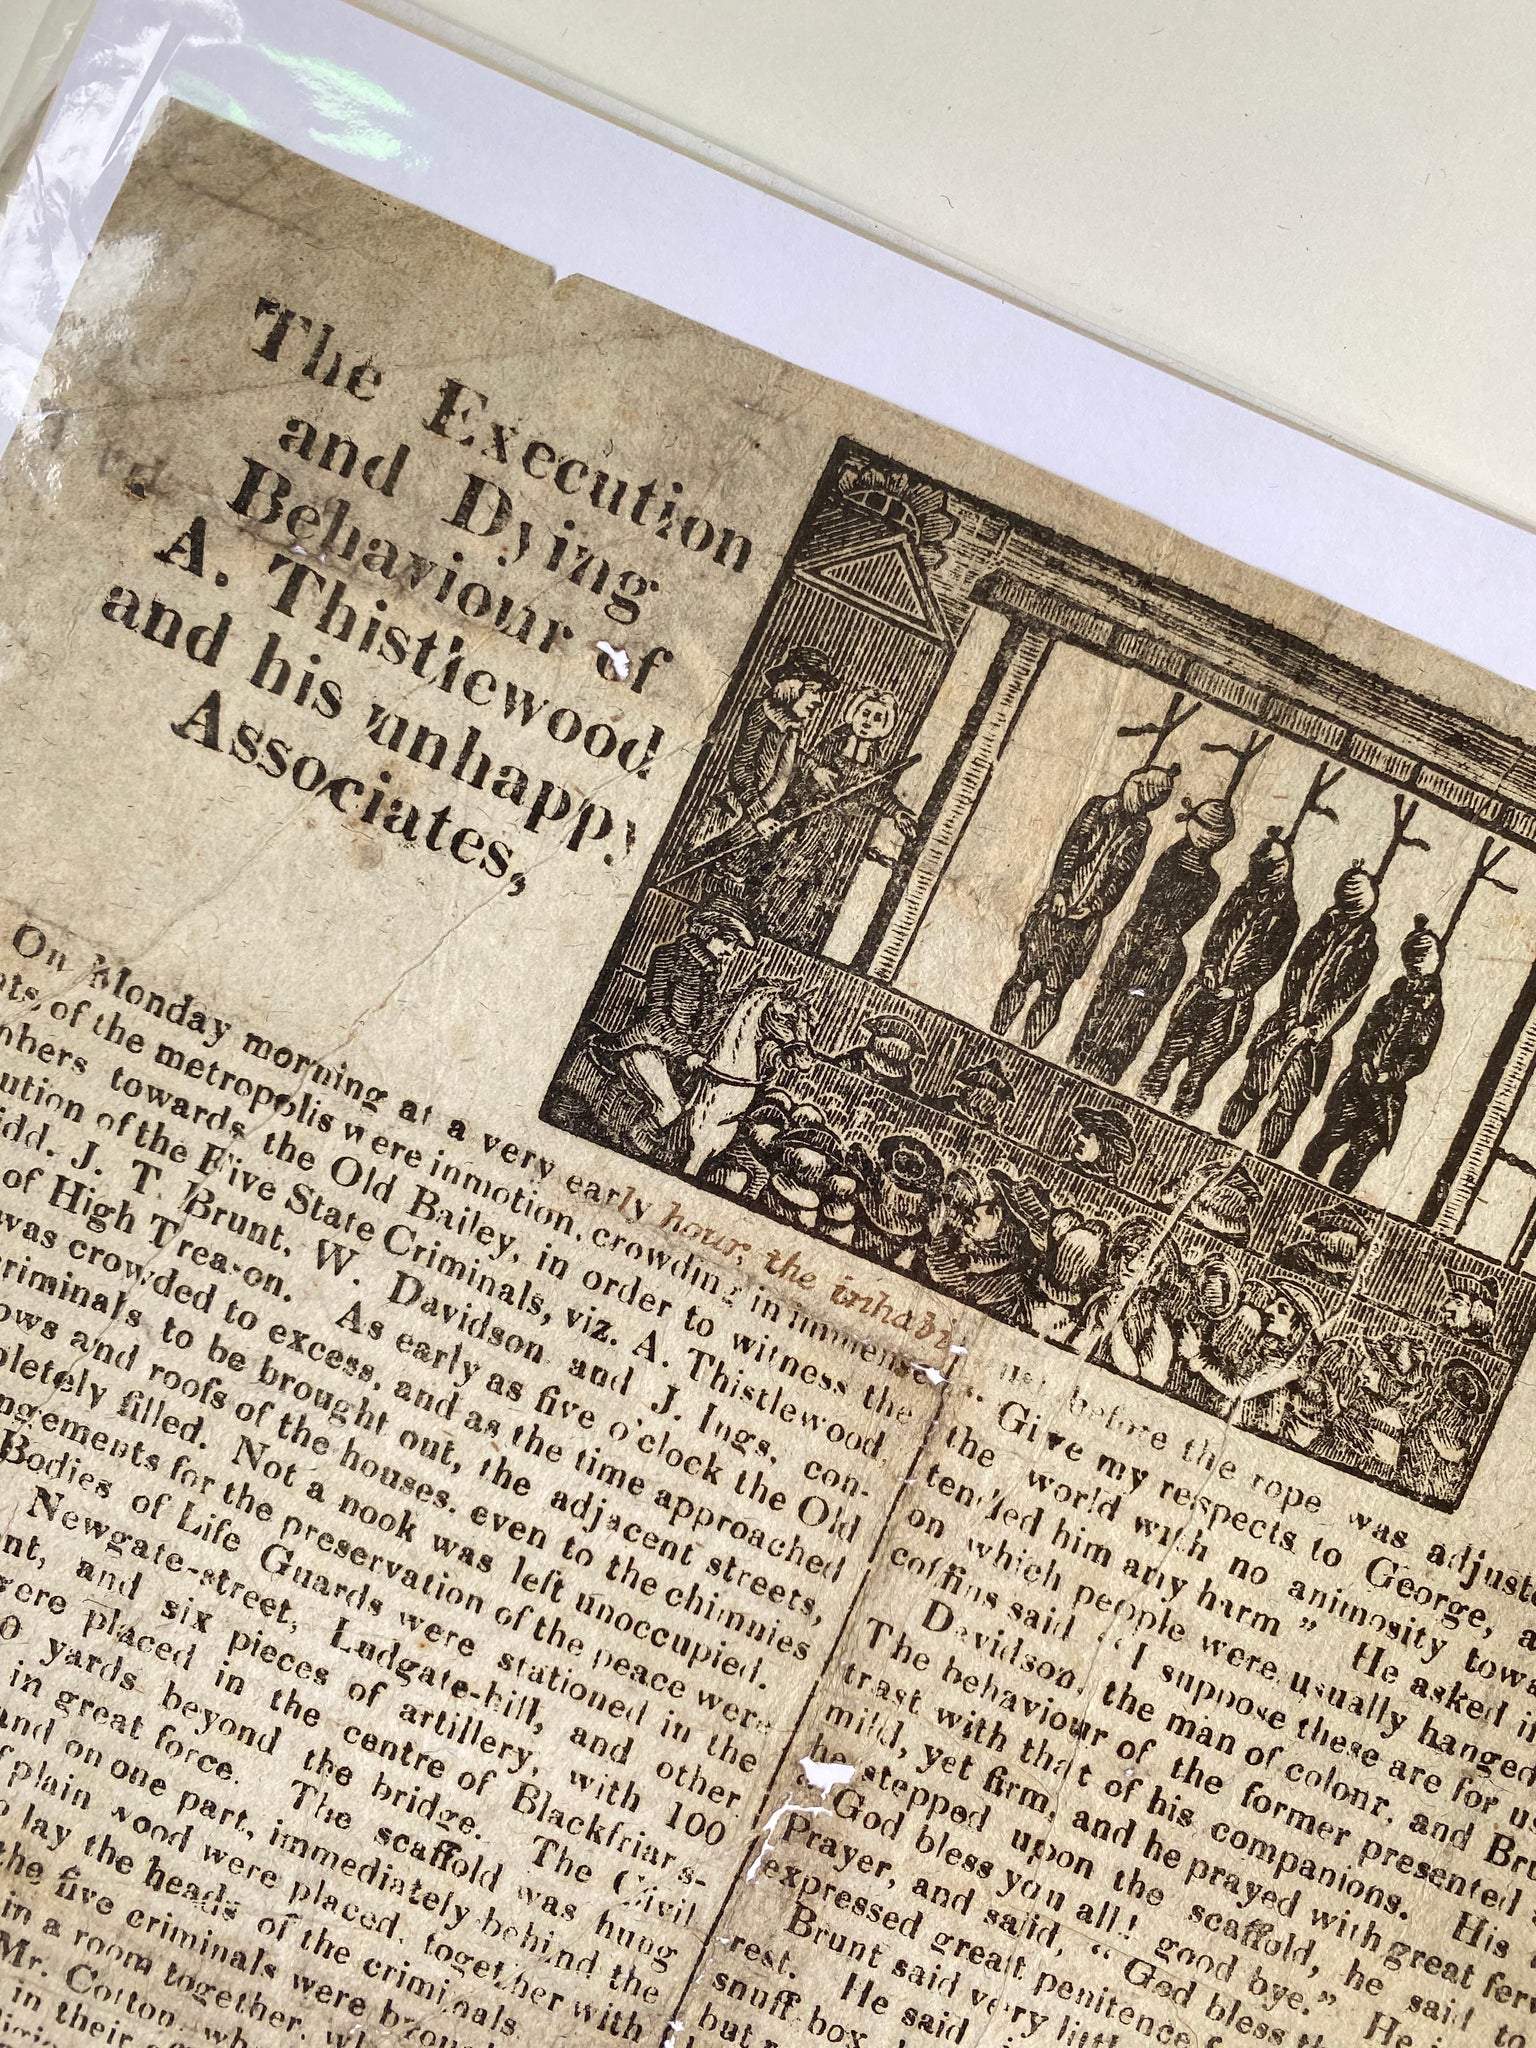 The Execution
and Dying
Behaviour of
A. Thistlewood
and his unhappy
Associates,
On Monday morning at a very early hour, the inhabi
of the metropolis were inmotion, crowding in immense
towards the Old Bailey, in order to witness the
of the Five State Criminals, viz. A. Thistlewood,
J. T. Brunt, W. Davidson and J. Ings, con-
of High Treason. As early as five o'clock the Old
was crowded to excess, and as the time approached
to be brought out, the adjacent streets,
and roofs of the houses, even to the chimnies
filled. Not a nook was left unoccupied.
for the preservation of the peace were
Bodies of Life Guards were stationed in the
Newgate-street, Ludgate-hill, and other
and six pieces of artillery, with 100
were placed in the centre of Blackfriars-
yards beyond the bridge. The Civil
in great force. The scaffold was hung
and on one part, immediately behind the
plain wood were placed, together with
lay the heads of the criminals
the five criminals were
in a room together,
Mr. Cotton
in their
before the rope was
Give my respects to George,
the world with no animosity
tended him any harm" He asked
on which people were usually hanged
coffins said "I suppose these are for us
Davidson, the man of colour, and
The behaviour of the former presented
trast with that of his companions. His
mild, yet firm, and he prayed with great
he stepped upon the scaffold, he said to
"God bless you all! good bye." He
Prayer, and said, "God bless
expressed great penitence
Brunt said very
rest. He said
snuff box
but